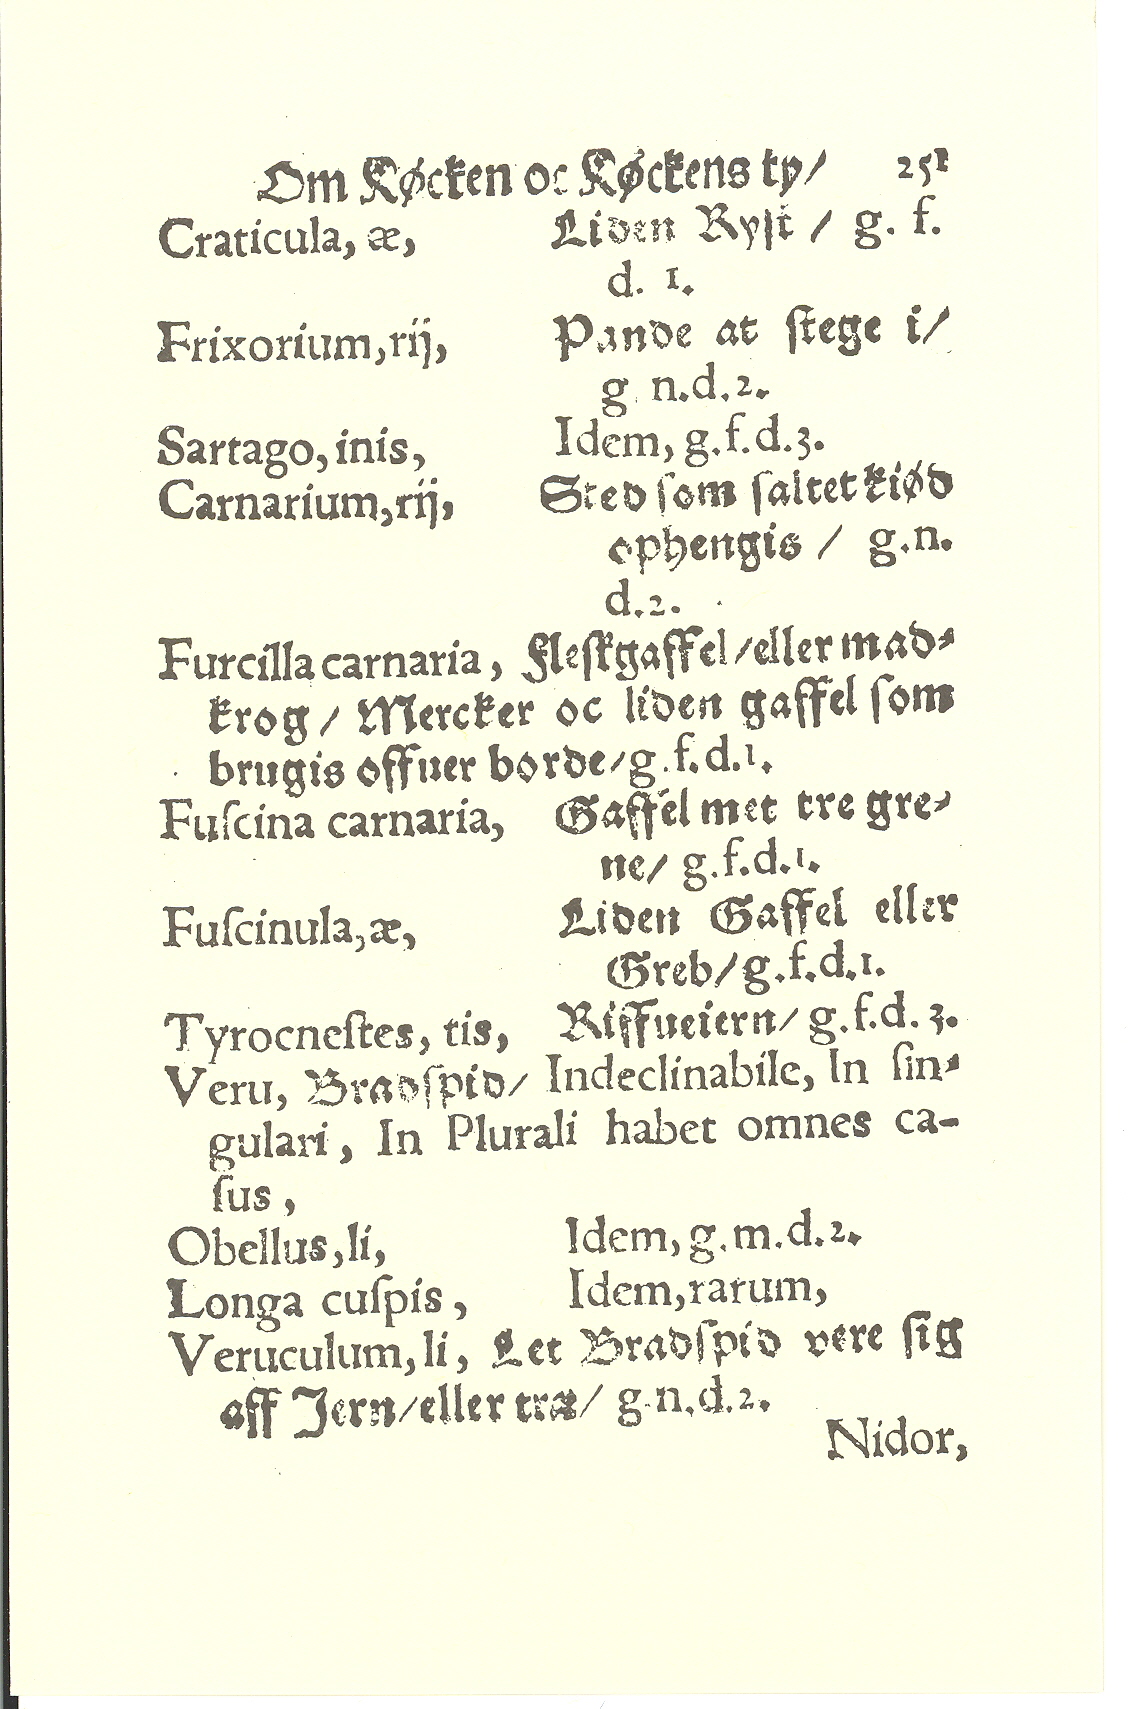 Om Køcken oc Køckens ty/ 251
Craticula, æ, Liden Ryst / g. f.
d. 1.
Frixorium, rij, Pande at stege i/
g n.d.2.
Sartago, inis, Idem, g.f.d.3.
Carnarium, rij, Sted som saltet kiød
ophengis / g.n.
d.2.
Furcilla carnaria, Fleskgaffel/eller mad-
krog / Mercker oc liden gaffel som
brugis offuer borde/g.f.d.1.
Fuſcina carnaria, Gaffel met tre gre-
ne/ g.f.d.1.
Fuſcinula, æ, Liden Gaffel eller
Greb/g.f.d.1.
Tyrocneſtes, tis, Riffueiern/ g.f.d.3.
Veru, Bradſpid/ Indeclinabile, In ſin-
gulari, In Plurali habet omnes ca-
ſus,
Obellus, li, Idem, g.m.d.2.
Longa cuſpis, Idem, rarum,
Veruculum, li, Let Bradſpid vere ſig
aff Jern/eller træ/ g.n.d.2.
Nidor,